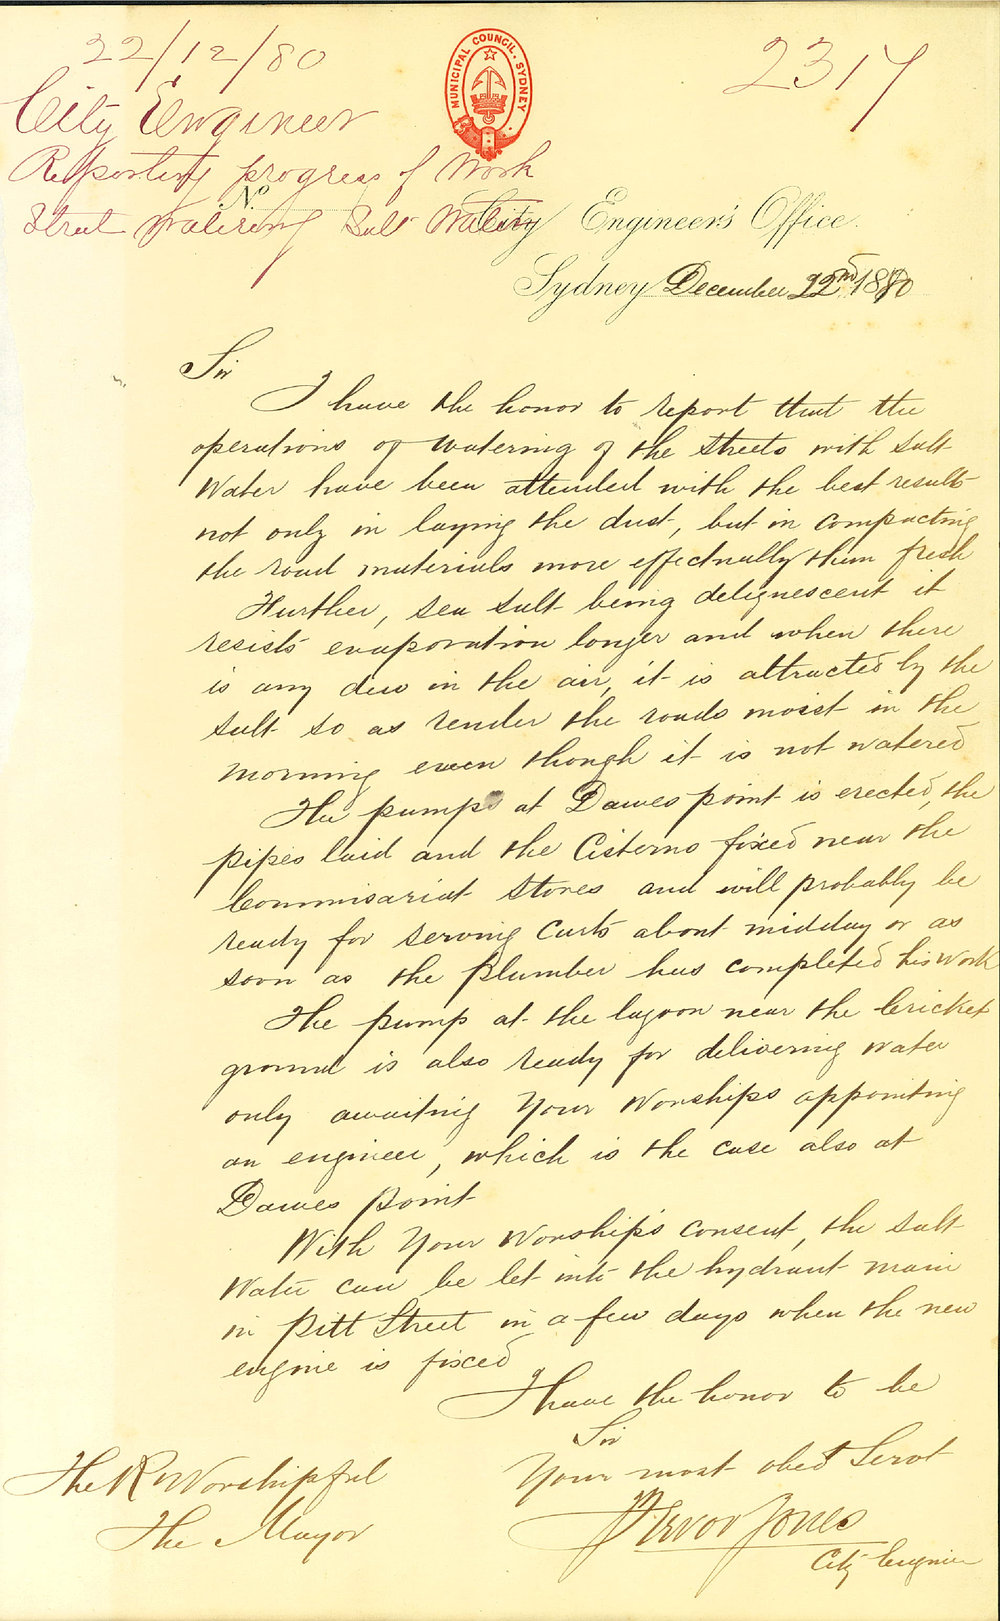 22/12/80
2317
MUNICIPAL COUNCIL. SYDNEY
City Engineer
Reporting progress of Work
Street Watering Salt Water
No.
City Engineer's Office.
Sydney December 22nd 1880
Sir
I have the honor to report that the
operations of watering of the streets with salt
Water have been attended with the best results
not only in laying the dust, but in compacting
the road materials more effectually than fresh
Further, sea salt being deliquescent it
resists evaporation longer and when there
is any dew in the air, it is attracted by the
salt so as render the roads moist in the
morning even though it is not watered
The pumps at Dawes point is erected, the
pipes laid and the Cisterns fixed near the
Commisariat Stores and will probably be
ready for serving Carts about midday or as
soon as the plumber has completed his work
The pump at the lagoon near the Cricket
ground is also ready for delivering water
only awaiting Your Worships appointing
an engineer, which is the case also at
Dawes point
With Your Worship's consent, the salt
Water can be let into the hydrant main
in Pitt Street in a few days when the new
engine is fixed
I have the honor to be
Sir
Your most obed Servt
Trevor Jones
City Engineer
The R Worshipful
The Mayor